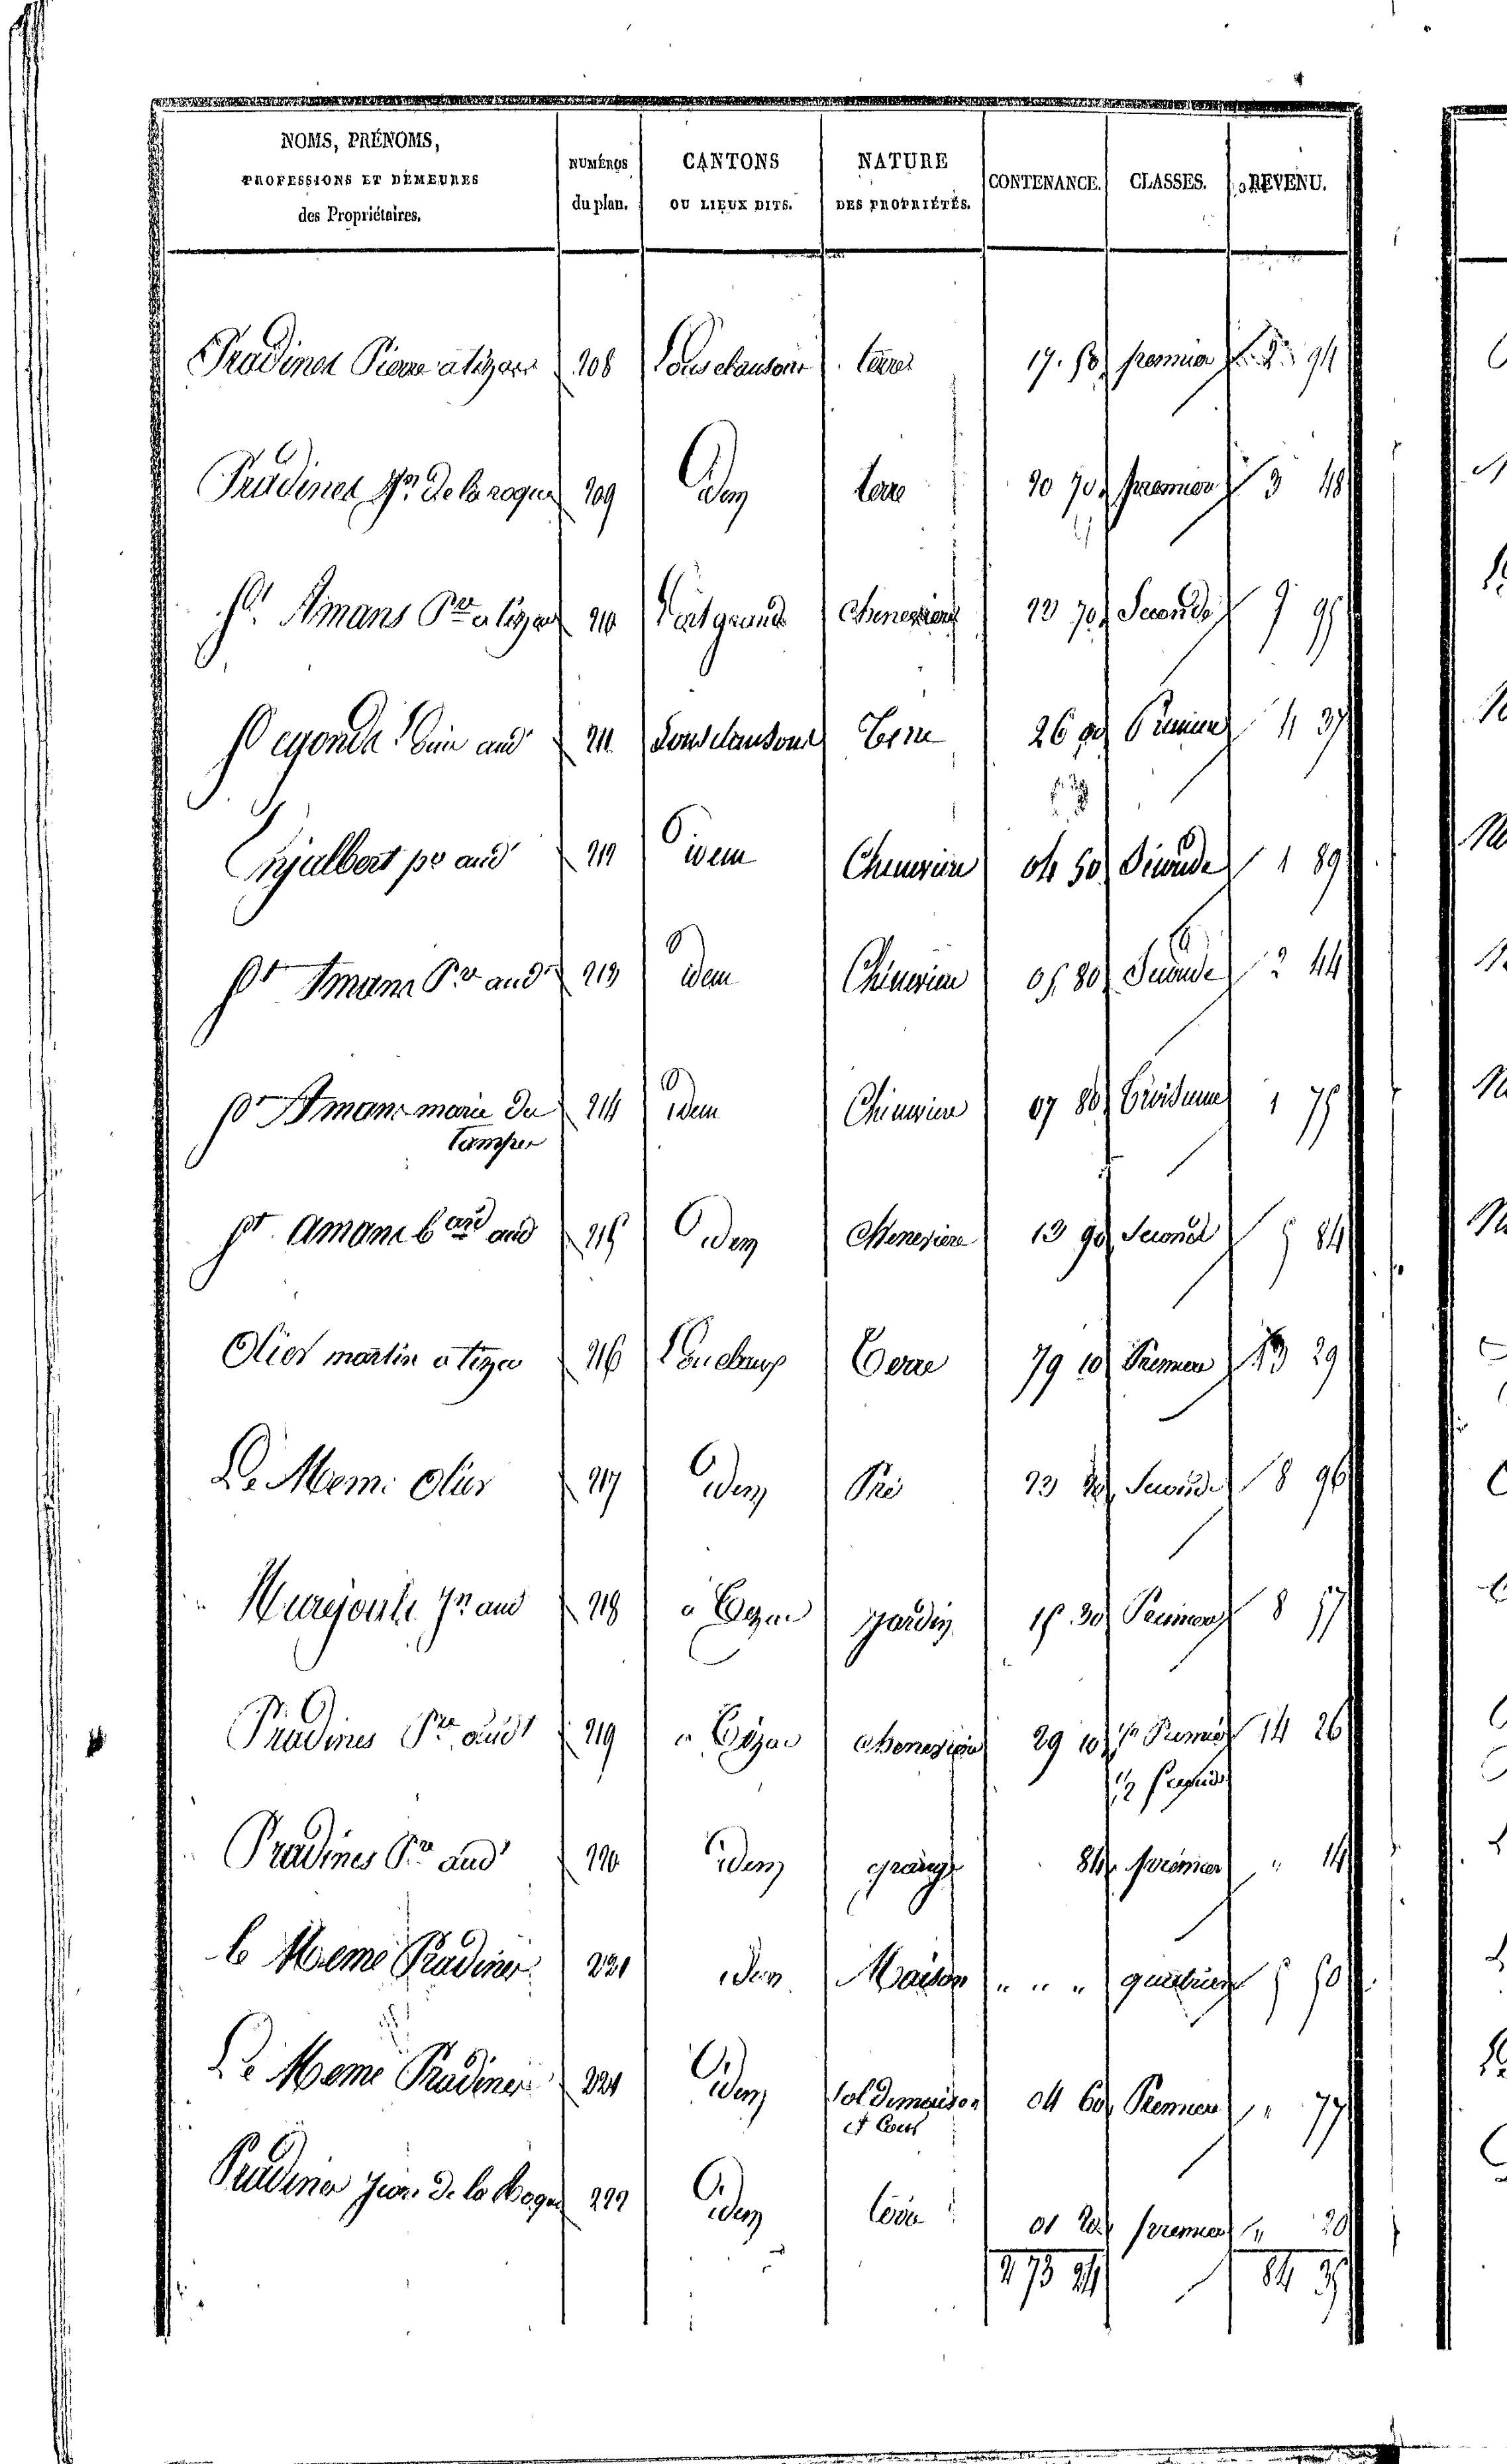 NOMS, PRÉNOMS, PROFESSIONS ET DEMEURES des Propriétaires. | NUMÉROS du plan. | CANTONS OU LIEUX DITS. | NATURE DES PROPRIÉTÉS. | CONTENANCE. | CLASSES. | REVENU.
Pradines Pierre a tizac 208 terre 17. 50 premier 2 94
Pradines Jn De la roque 209 Idem terre 20 70 premiere 3 48
St. Amans Pre a tizac 210 Prat grand Cheneviere 23 70 Seconde 9 95
211 Lousclausous Terre 26 Premiere 4 37
Gjalbert pre aud 212 idem Cheneviere 04 50 Seconde 1 89
St Amans Pre aud 213 idem Cheneviere 05 80 Seconde 2 44
St Amans marie du 214 idem Cheneviere 07 80 Troisieme 1 75
St amans bard aud 215 idem Cheneviere 13 90 Second 5 84
Olier martin a tizac 216 Terre 79 10 Premiere 13 29
Le Mem. Olier 217 idem Pré 23 Seconde 8 96
Murejouls Jn aud 218 a Tizac jardin 15 30 Premiere 8 57
Pradines Pre audt 219 a Tizac Cheneviere 29 10 1/2 Premier 14 26
1/2 Seconde
Pradines Pre aud 220 idem grange 84 premier " 14
le Meme Pradines 221 idem Maison " " " quatrieme 5 50
Le Meme Pradines 221 idem Sol de maison 04 60 Premiere " 77
et Cour
Pradines Jean De la Roque 222 idem terre 01 20 premier " 20
273 24 84 35